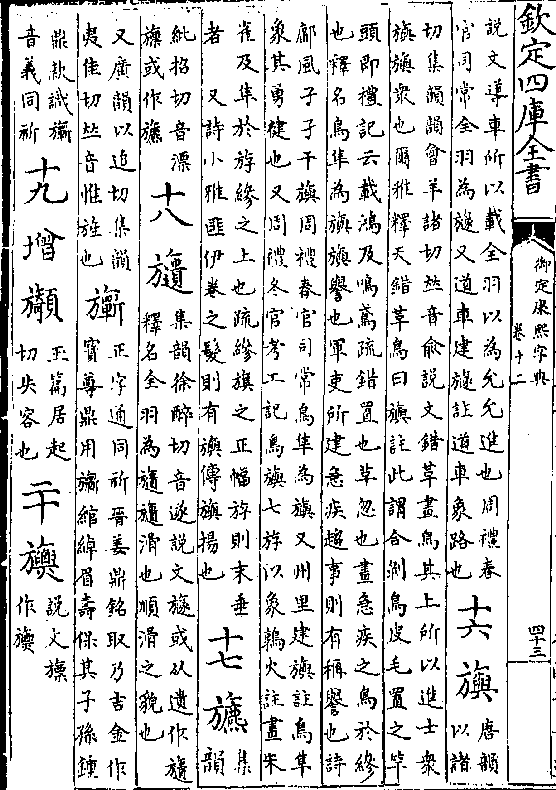 欽定四庫全書
御定康熙字典
卷十二
四十三
說文導車所以載全羽以為允允進也周禮春
官司常全羽為旞又道車建旞註道車象路也
十六 旟 唐韻
以諸
切集韻韻會羊諸切𠀤音俞說文錯革畫鳥其上所以進士衆
旟旟衆也爾雅釋天錯革鳥曰旟註此謂合剥鳥皮毛置之竿
頭即禮記云載鴻及鳴鳶疏錯置也革急也畫急疾之鳥於縿
也釋名鳥隼為旟旟譽也軍吏所建急疾趨事則有稱譽也詩
鄘風孑孑干旟周禮春官司常鳥隼為旟又州里建旟註鳥隼
象其勇健也又周禮冬官考工記鳥旟七斿以象鶉火註畫朱
雀及隼於斿縿之上也疏縿旗之正幅斿則末垂
者 又詩小雅匪伊卷之髮則有旟傳旟揚也
十七 集
韻
紕招切音漂
旚或作
十八 𣄧 集韻徐醉切音遂說文旞或从遺作𣄧
釋名全羽為𣄧𣄧滑也順滑之貌也
又廣韻以追切集韻
夷隹切𠀤音惟旌也
正字通同祈晉姜鼎銘取乃吉金作
寶尊鼎用綰綽眉壽保其子孫鍾
鼎欵識
音義同祈
十九 增 玉篇居起
切失容也
二十 說文
作